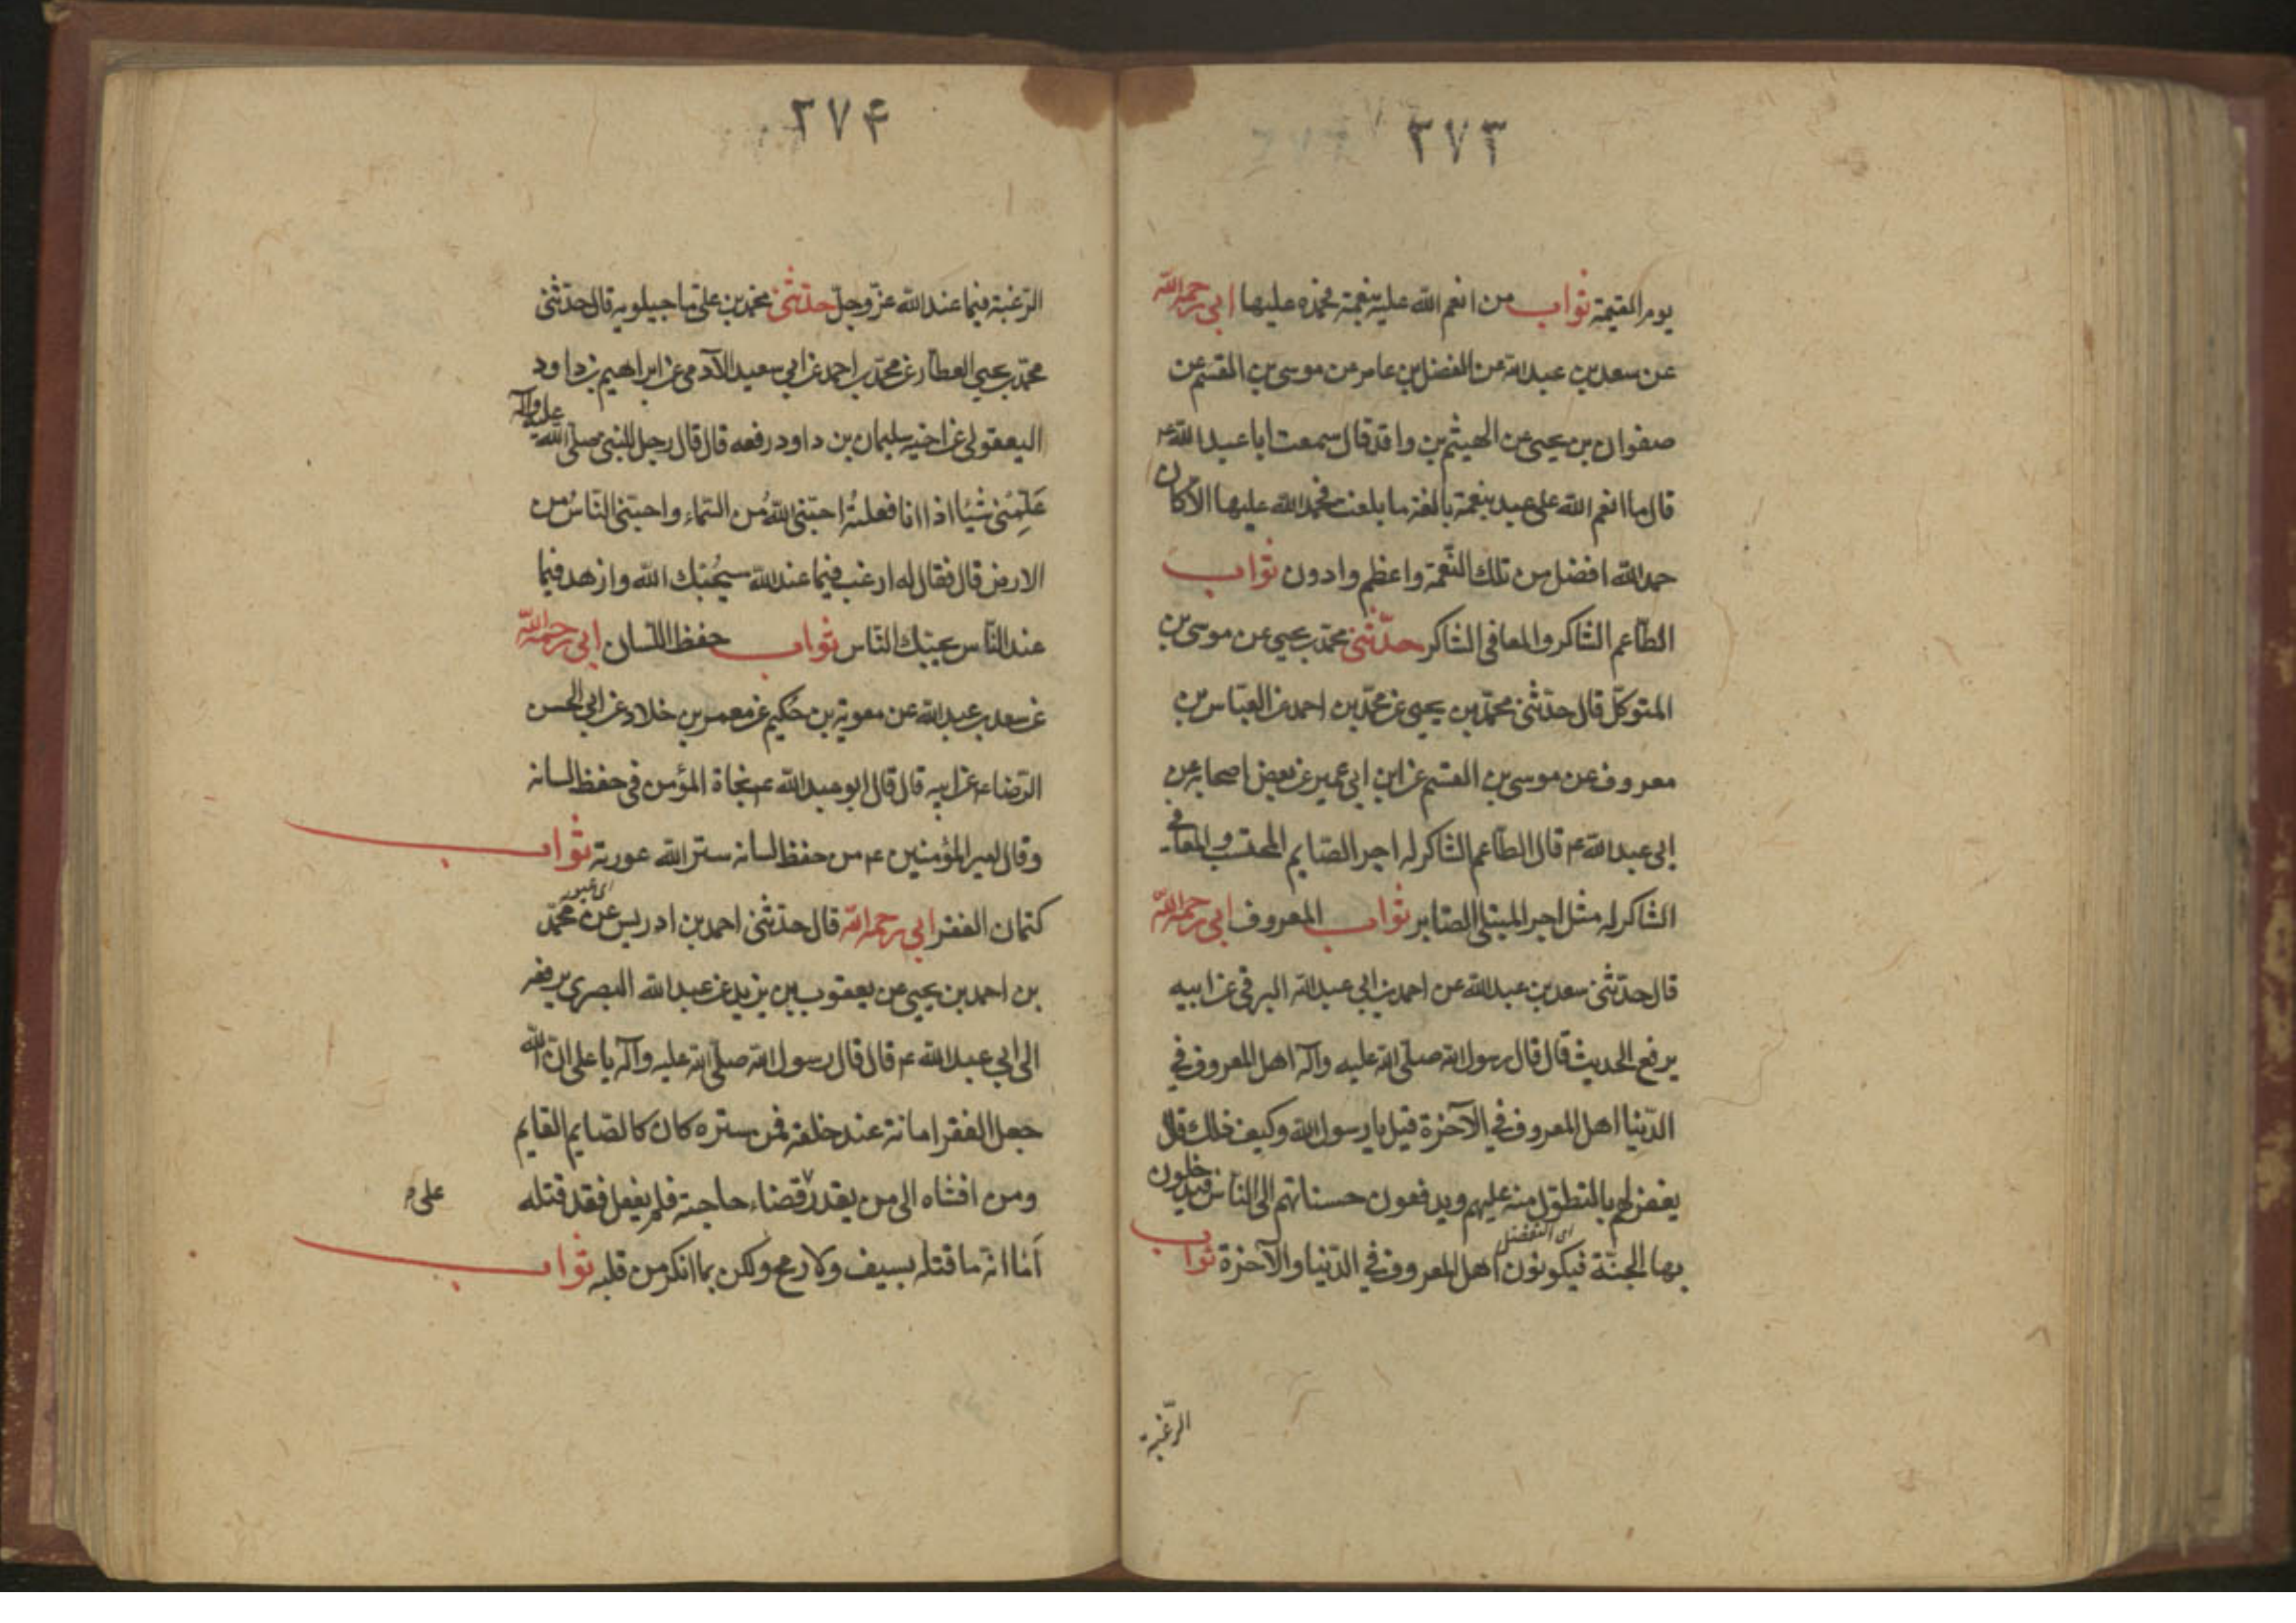 ٣٧٣
يوم القيمة ثواب من انعم الله عليه بنعمة فحمده عليها ابي رحمه الله
عن سعد بن عبد الله عن الفضل بن عامر عن موسى بن القسم عن
صفوان بن يحيى عن الهيثم بن واقد قال سمعت ابا عبد الله ع
قال ما انعم الله على عبد بنعمة بالغة ما بلغت فحمد الله عليها الا كان
حمد الله افضل من تلك النعمة واعظم وادون ثواب
الطاعم الشاكر والمعافى الشاكر حدثنى محمد بن يحيى عن موسى بن
المتوكل قال حدثنى محمد بن يحيى عن محمد بن احمد عن العباس بن
معروف عن موسى بن القسم عن ابن ابي عمير عن بعض اصحابه عن
ابى عبد الله ع قال الطاعم الشاكر له اجر الصايم المحتسب والمعافى
الشاكر له مثل اجر المبتلى الصابر ثواب المعروف ابي رحمه الله
قال حدثنى سعد بن عبد الله عن احمد بن ابي عبد الله البرقى عن ابيه
يرفع الحديث قال قال رسول الله صلى الله عليه وآله اهل المعروف في
الدنيا اهل المعروف في الآخرة قيل يا رسول الله وكيف ذلك قال
يغفر لهم بالتطول منه عليهم ويدفعون حسناتهم الى الناس فيدخلون
اى التفضل
بها الجنة فيكونون اهل المعروف في الدنيا والآخرة ثواب
الرغبة
٣٧۴
الرغبة فيما عند الله عز وجل حدثنى محمد بن على ماجيلويه قال حدثنى
محمد بن يحيى العطار عن محمد بن احمد عن ابي سعيد الآدمى عن ابراهيم بن داود
اليعقوبى عن اخيه سليمان بن داود رفعه قال قال رجل للنبى صلى الله عليه وآله
علمنى شيئا اذا انا فعلته احبنى الله من السماء واحبنى الناس من
الارض قال فقال له ارغب فيما عند الله سيحبك الله وازهد فيما
عند الناس يحبك الناس ثواب حفظ اللسان ابي رحمه الله
عن سعد بن عبد الله عن معوية بن حكيم عن معمر بن خلاد عن ابي الحسن
الرضاء ع عن ابيه قال قال ابو عبد الله ع نجاة المؤمن في حفظ لسانه
وقال امير المؤمنين ع من حفظ لسانه ستر الله عورته ثواب
كتمان الفقر ابي رحمه الله قال حدثنى احمد بن ادريس عن محمد
بن احمد بن يحيى عن يعقوب بن يزيد عن عبد الله البصرى يرفعه
الى ابي عبد الله ع قال قال رسول الله صلى الله عليه وآله يا على ان الله
جعل الفقر امانة عند خلقه فمن ستره كان كالصايم القايم
ومن افشاه الى من يقدر قضاء حاجته فلم يفعل فقد قتله
على
اما انه ما قتله بسيف ولا رمح ولكن بما انكر من قلبه ثواب